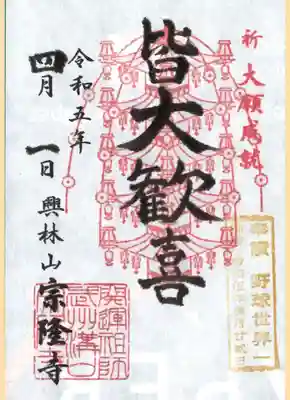 祈 大願成就
皆大歓喜
令和五年
四月 一日 興林山 宗隆寺
開運祖師
武州溝口
奉讃 野球世界一